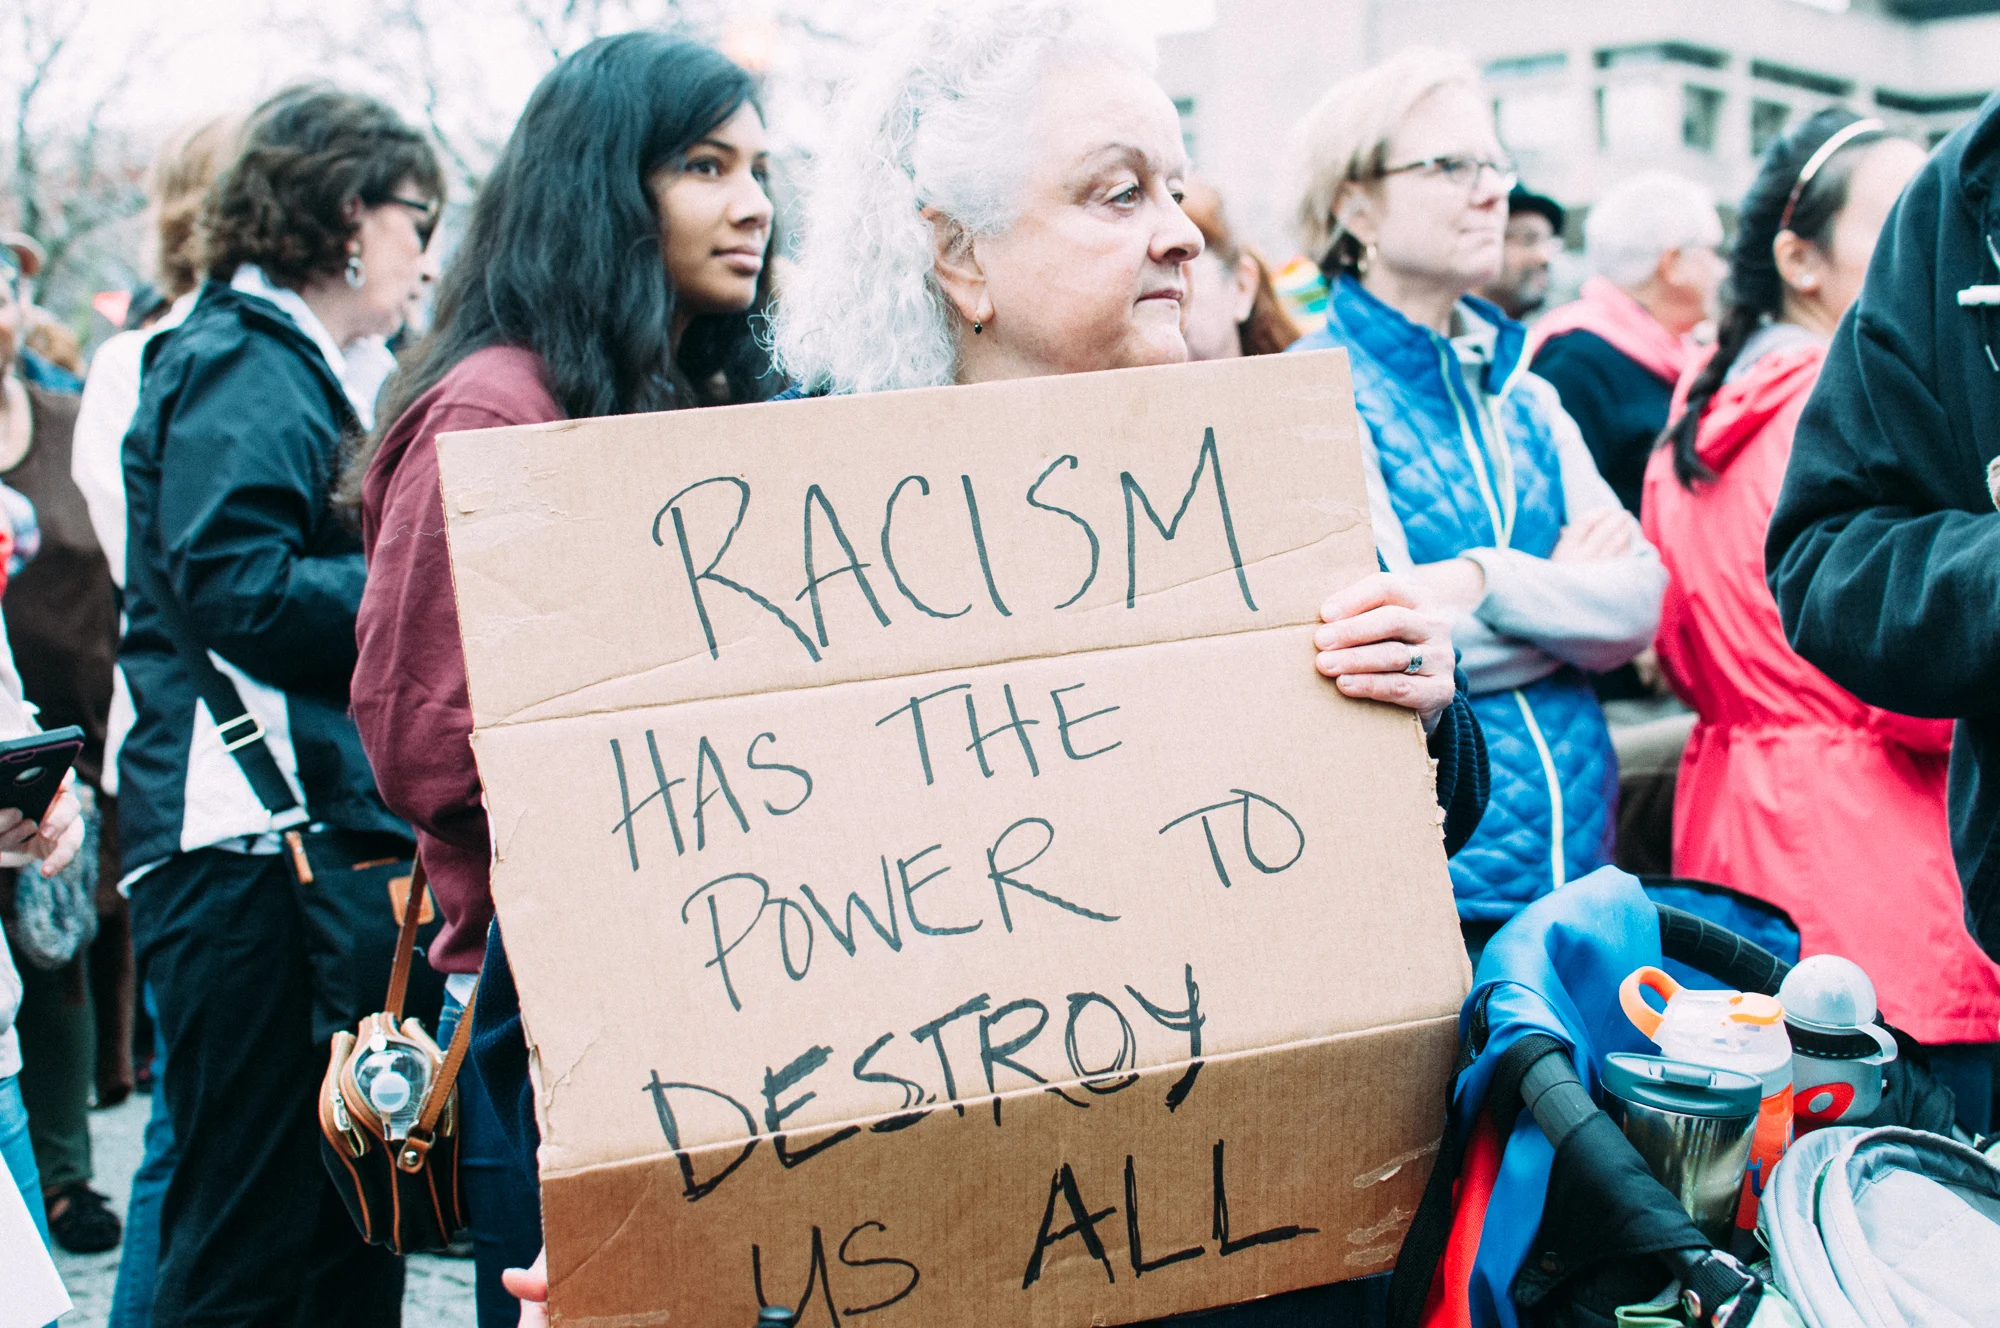 RACISM
HAS THE
POWER TO
DESTROY
US ALL